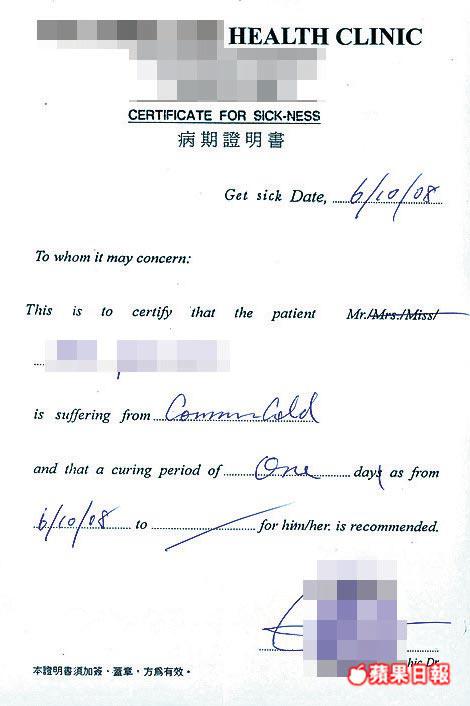 HEALTH CLINIC
CERTIFICATE FOR SICK-NESS
病期證明書
Get sick Date, 6/10/08
To whom it may concern:
This is to certify that the patient Mr./Mrs./Miss/
is suffering from Common Cold
and that a curing period of One days as from
6/10/08 to for him/her. is recommended.
hic Dr
本證明書須加簽·蓋章·方為有效。
蘋果日報